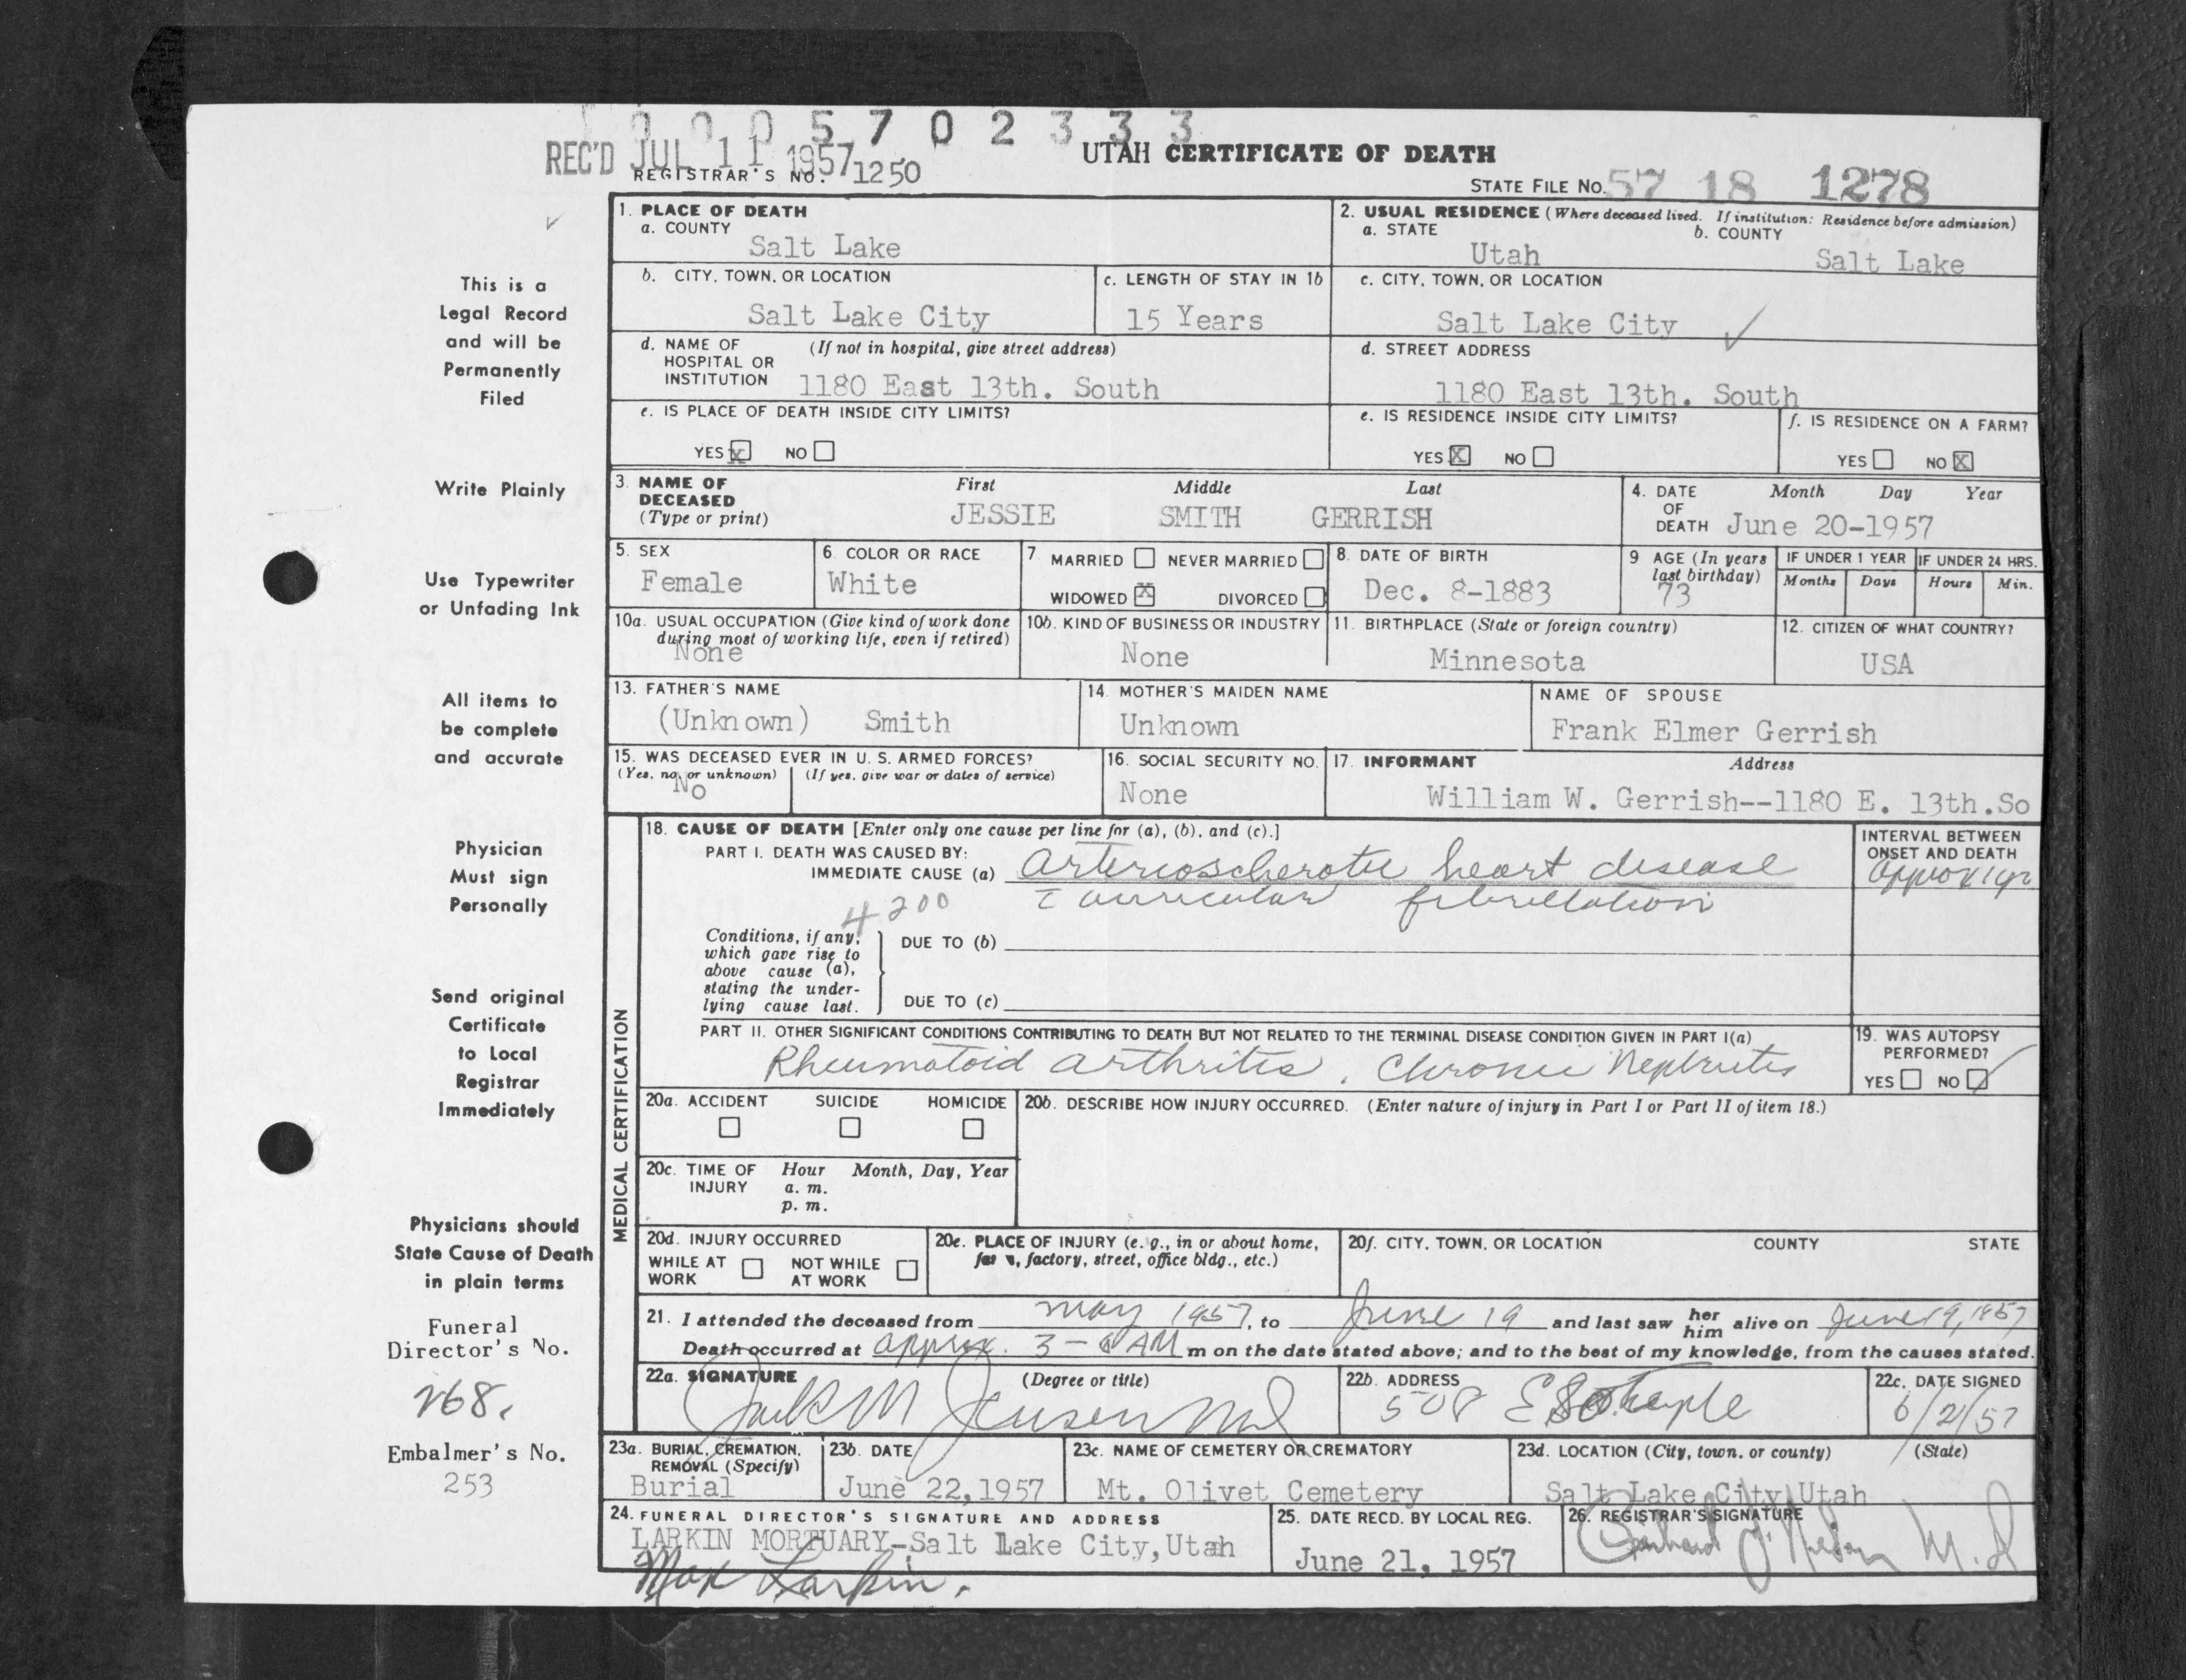 1 0 0 0 5 7 0 2 3 3 3
REC'D JUL 11 1957
UTAH CERTIFICATE OF DEATH
REGISTRAR'S NO. 1250
STATE FILE NO. 57 18 1278
This is a
Legal Record
and will be
Permanently
Filed
Write Plainly
Use Typewriter
or Unfading Ink
All items to
be complete
and accurate
Physician
Must sign
Personally
Send original
Certificate
to Local
Registrar
Immediately
Physicians should
State Cause of Death
in plain terms
Funeral
Director's No.
268.
Embalmer's No.
253
1. PLACE OF DEATH
a. COUNTY
Salt Lake
2. USUAL RESIDENCE (Where deceased lived. If institution: Residence before admission)
a. STATE b. COUNTY
Utah Salt Lake
b. CITY, TOWN, OR LOCATION
Salt Lake City
c. LENGTH OF STAY IN 1b
15 Years
c. CITY, TOWN, OR LOCATION
Salt Lake City ✓
d. NAME OF (If not in hospital, give street address)
HOSPITAL OR
INSTITUTION 1180 East 13th. South
d. STREET ADDRESS
1180 East 13th. South
e. IS PLACE OF DEATH INSIDE CITY LIMITS?
YES X NO
e. IS RESIDENCE INSIDE CITY LIMITS?
YES X NO
f. IS RESIDENCE ON A FARM?
YES NO X
3. NAME OF First Middle Last
DECEASED
(Type or print) JESSIE SMITH GERRISH
4. DATE Month Day Year
OF
DEATH June 20-1957
5. SEX
Female
6. COLOR OR RACE
White
7 MARRIED NEVER MARRIED
WIDOWED X DIVORCED
8. DATE OF BIRTH
Dec. 8-1883
9 AGE (In years
last birthday)
73
IF UNDER 1 YEAR IF UNDER 24 HRS.
Months Days Hours Min.
10a. USUAL OCCUPATION (Give kind of work done
during most of working life, even if retired)
None
10b. KIND OF BUSINESS OR INDUSTRY
None
11. BIRTHPLACE (State or foreign country)
Minnesota
12. CITIZEN OF WHAT COUNTRY?
USA
13. FATHER'S NAME
(Unknown) Smith
14. MOTHER'S MAIDEN NAME
Unknown
NAME OF SPOUSE
Frank Elmer Gerrish
15. WAS DECEASED EVER IN U. S. ARMED FORCES?
(Yes, no, or unknown) (If yes, give war or dates of service)
No
16. SOCIAL SECURITY NO.
None
17. INFORMANT Address
William W. Gerrish--1180 E. 13th.So
MEDICAL CERTIFICATION
18. CAUSE OF DEATH [Enter only one cause per line for (a), (b), and (c).]
PART I. DEATH WAS CAUSED BY:
IMMEDIATE CAUSE (a) Arterioscherotic heart disease
c̄ auricular fibrillation
4200
INTERVAL BETWEEN
ONSET AND DEATH
Approx 1 yr
Conditions, if any,
which gave rise to
above cause (a),
stating the under-
lying cause last.
DUE TO (b)
DUE TO (c)
PART II. OTHER SIGNIFICANT CONDITIONS CONTRIBUTING TO DEATH BUT NOT RELATED TO THE TERMINAL DISEASE CONDITION GIVEN IN PART I(a)
Rheumatoid Arthritis, Chronic Nephritis
19. WAS AUTOPSY
PERFORMED?
YES NO
20a. ACCIDENT SUICIDE HOMICIDE
20b. DESCRIBE HOW INJURY OCCURRED. (Enter nature of injury in Part I or Part II of item 18.)
20c. TIME OF Hour Month, Day, Year
INJURY a. m.
p. m.
20d. INJURY OCCURRED
WHILE AT NOT WHILE
WORK AT WORK
20e. PLACE OF INJURY (e. g., in or about home,
factory, street, office bldg., etc.)
20f. CITY, TOWN, OR LOCATION COUNTY STATE
21. I attended the deceased from May 1957, to June 19 and last saw her him alive on June 19, 1957
Death occurred at approx. 3 - AM m on the date stated above; and to the best of my knowledge, from the causes stated.
22a. SIGNATURE (Degree or title)
Jack M Jensen MD
22b. ADDRESS
508 E So Temple
22c. DATE SIGNED
6/21/57
23a. BURIAL, CREMATION,
REMOVAL (Specify)
Burial
23b. DATE
June 22,1957
23c. NAME OF CEMETERY OR CREMATORY
Mt. Olivet Cemetery
23d. LOCATION (City, town, or county) (State)
Salt Lake City Utah
24. FUNERAL DIRECTOR'S SIGNATURE AND ADDRESS
LARKIN MORTUARY-Salt Lake City,Utah
Max Larkin.
25. DATE RECD. BY LOCAL REG.
June 21, 1957
26. REGISTRAR'S SIGNATURE
M.D